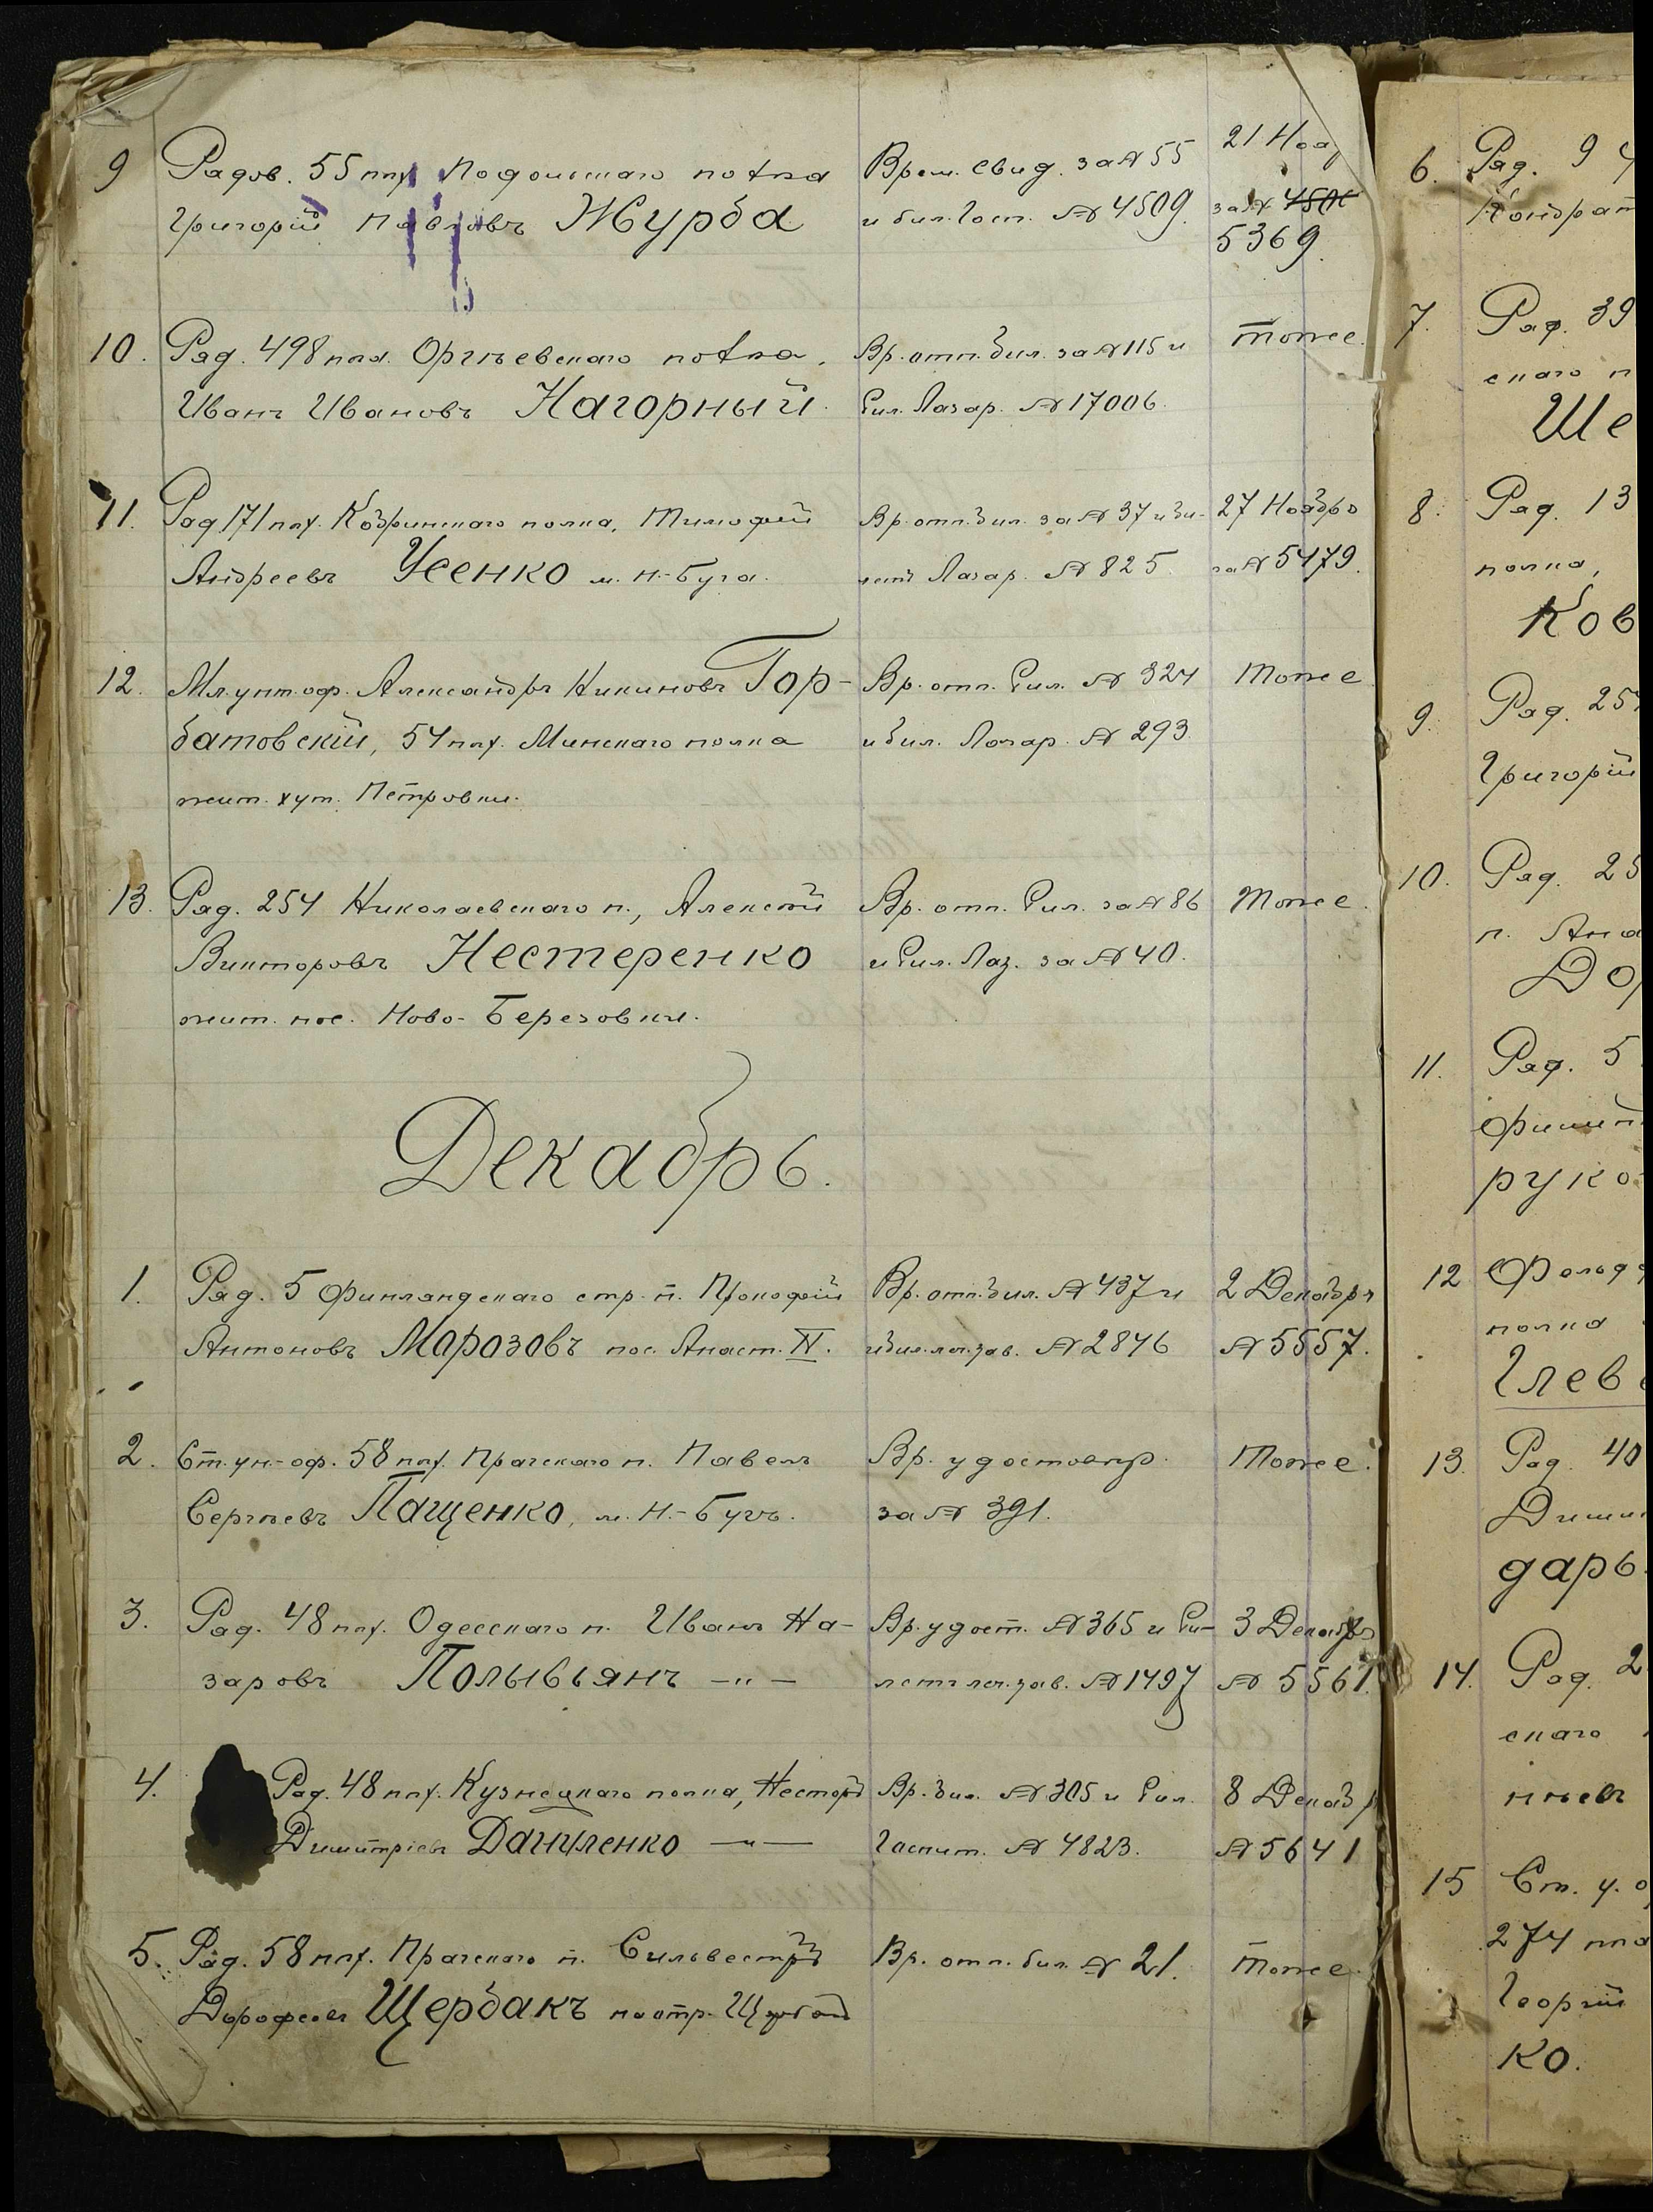 9 Рядов. 55 пѣх. Подольскаго полка Врем. свид. за № 55 21 Нояб
Григорій Павловъ Журба и бил. Госп. № 4509. за № 450
5369.
10. Ряд. 498 пѣх. Оргѣевскаго полка, Вр. отп. бил. за № 115 и тоже.
Иванъ Ивановъ Нагорный. бил. Лазар. № 17006.
11. Ряд 171 пѣх. Кобринскаго полка, Тимофей Вр. отп. бил. за № 37 и би- 27 Ноября
Андреевъ Усенко м. Н.-Буга. летъ Лазар. № 825. за № 5479.
12. Мл. унт. оф. Александръ Никиновъ Гор- Вр. отп. бил. № 324 Тоже
батовскій, 54 пѣх. Минскаго полка и бил. Лазар. № 293.
жит. хут. Петровки.
13. Ряд. 254 Николаевскаго п., Алексѣй Вр. отп. бил. за № 86 Тоже.
Викторовъ Нестеренко и бил. Лаз. за № 40.
жит. пос. Ново-Березовки.
Декабрь.
1. Ряд. 5 Финляндскаго стр. п. Прокофій Вр. отп. бил. № 437 и 2 Декабря
Антоновъ Марозовъ пос. Анаст. и бил. леч. зав. № 2846 № 5557.
2. Ст. ун.-оф. 58 пѣх. Прагскаго п. Павелъ Вр. удостовѣр. Тоже.
Сергѣевъ Пащенко, м. Н.-Бугъ. за № 391.
3. Ряд. 48 пѣх. Одесскаго п. Иванъ На- Вр. удост. № 365 и би- 3 Декабря
заровъ Полывьянъ —"— летъ леч. зав. № 1497 № 5561.
4. Ряд. 48 пѣх. Кузнецкаго полка, Несторъ Вр. бил. № 305 и бил. 8 Декабр
Димитріевъ Даниленко —"— Госпит. № 4823. № 5641
5. Ряд. 58 пѣх. Прагскаго п. Сильвестръ Вр. отп. бил. № 21. тоже.
Дорофеевъ Щербакъ
6. Ряд. 9 4
Кондрат
7. Ряд. 39
скаго п
Ше
8. Ряд. 13
полка,
Ков
9. Ряд. 25
Григорій
10. Ряд. 25
п. Ана
До
11. Ряд. 5
Финлян
руко
12 Фельд
полка
Глев
13. Ряд. 40
Дими
дарь.
14. Ряд. 2
скаго
ніевъ
15 Ст. у. о
274 пѣх
Георгій
ко.